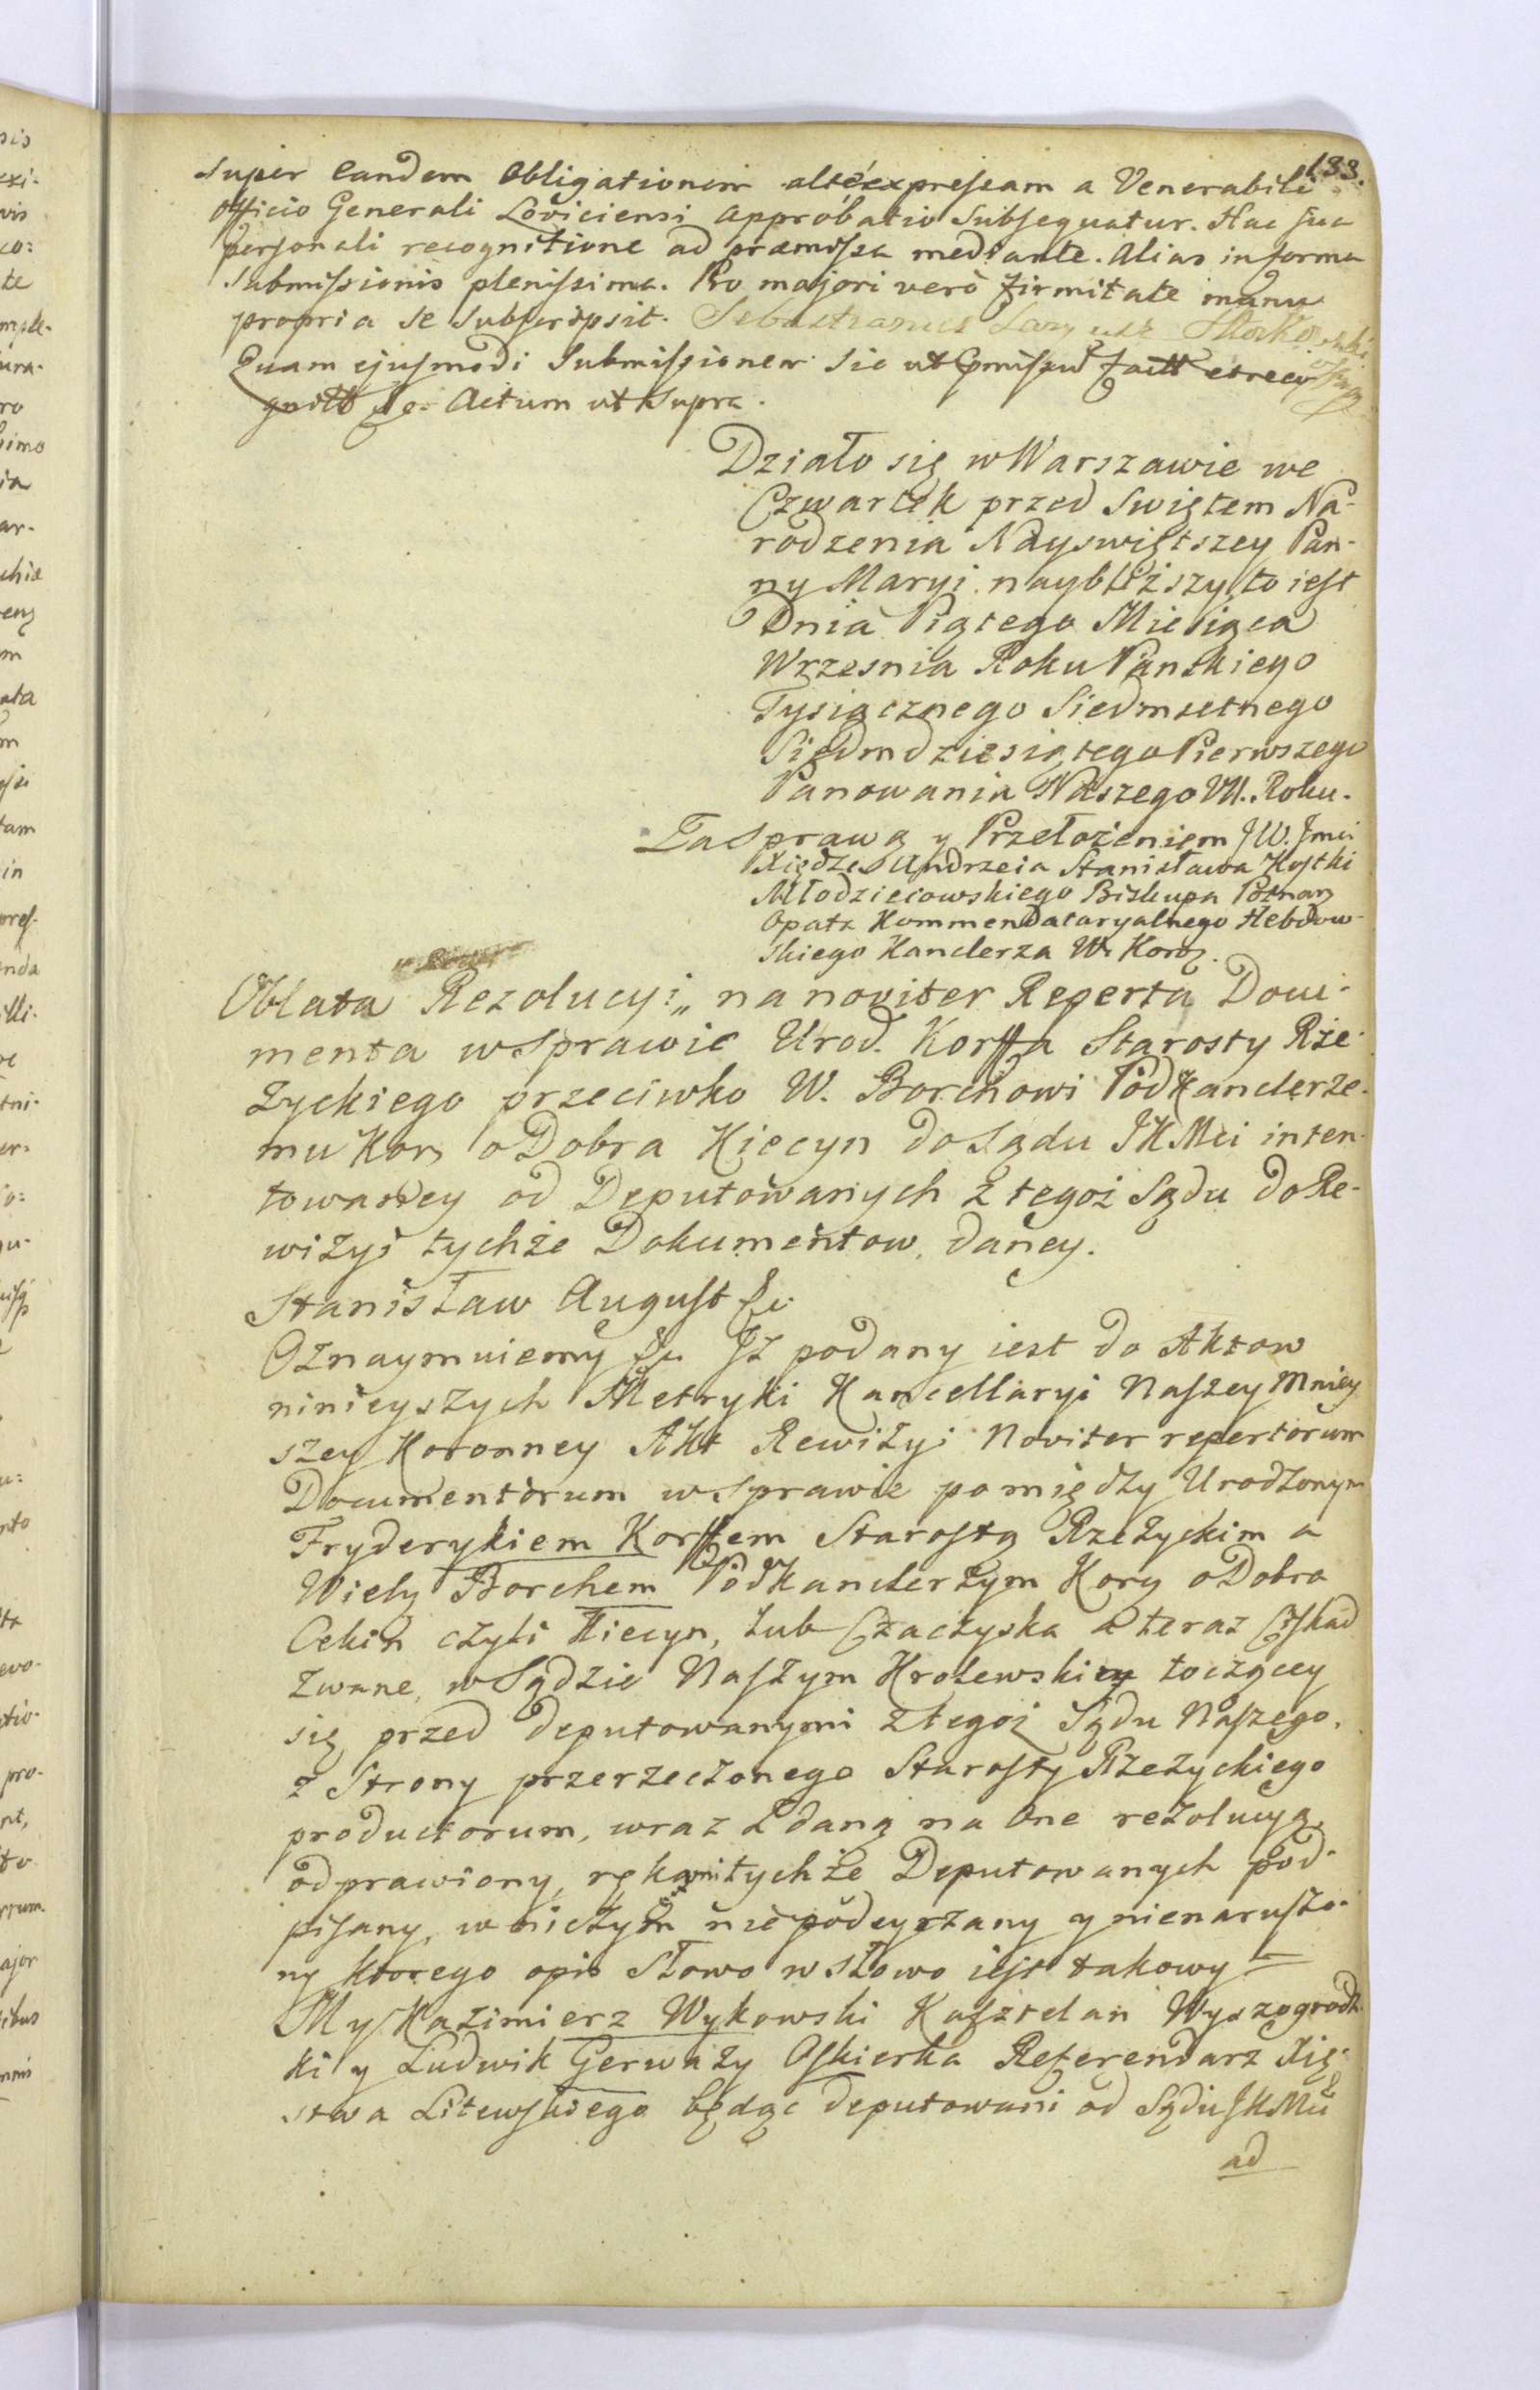 183.
super eandem Obligationem altè expressam a Venerabili
Officio Generali Loviciensi Approbatio Subsequatur. Hac sua
personali recognitione ad praemissa mediante. Alias in forma
submissionis plenissima. Pro majori verò firmitate manu
propria se subscripsit. Sebastianus
Quam ejusmodi Submissionem sic ut praemissum facit et reco
gnoscit &c. Actum ut supra.
Działo się w Warszawie we
Czwartek przed Swiętem Na-
rodzenia Nayswiętszey Pan-
ny Maryi naybliższy, to iest
Dnia Piątego Miesiąca
Wrzesnia Roku Panskiego
Tysiącznego Siedmsetnego
Siedmdziesiątego Pierwszego
Panowania Naszego VII. Roku.
Za Sprawą y Przełożeniem JW. Jmci
Xiędza Andrzeia Stanisława Kostki
Młodzieiowskiego Biskupa Poznań
Opata Kommendataryalnego Hebdow-
skiego Kanclerza W. Koroń.
Oblata Rezolucyi „ na noviter Reperta Docu-
menta w Sprawie Urod. Korffa Starosty Rze-
życkiego przeciwko W. Borchowi Podkanclerze-
mu Kor o Dobra Kiecyn do Sądu JKMci inten-
towaney od Deputowanych z tegoż Sądu do Re-
wizyi tychże Dokumentow, daney.
Stanisław August &c.
Oznaymuiemy &c. Iż podany iest do Aktow
ninieyszych Metryki Kancellaryi Naszey Mniey
szey Koronney Akt Rewizyi Noviter repertorum
Documentorum w Sprawie pomiędzy Urodzonym
Fryderykiem Korffem Starostą Rzeżyckim a
Wielą Borchem Podkanclerzym Kory o Dobra
Cekin czyli Kiecyn, lub Czaczyska a teraz
zwane, w Sądzie Naszym Krolewskiey toczącey
się przed deputowanymi z tegoż Sądu Naszego,
z Strony przerzeczonego Starosty Rzeżyckiego
productorum, wraz z daną na one rezolucyą,
odprawiony, rękami tychże Deputowanych pod-
pisany, w niczym niepodeyrzany y nienaruszo-
ny ktorego opis Słowo w słowo iest takowy =
My Kazimierz Wykowski Kasztelan Wyszogrodz-
ki y Ludwik Gerwazy Oskierka Referendarz Xię-
stwa Litewskiego będąc deputowani od Sądu JKMci
ad